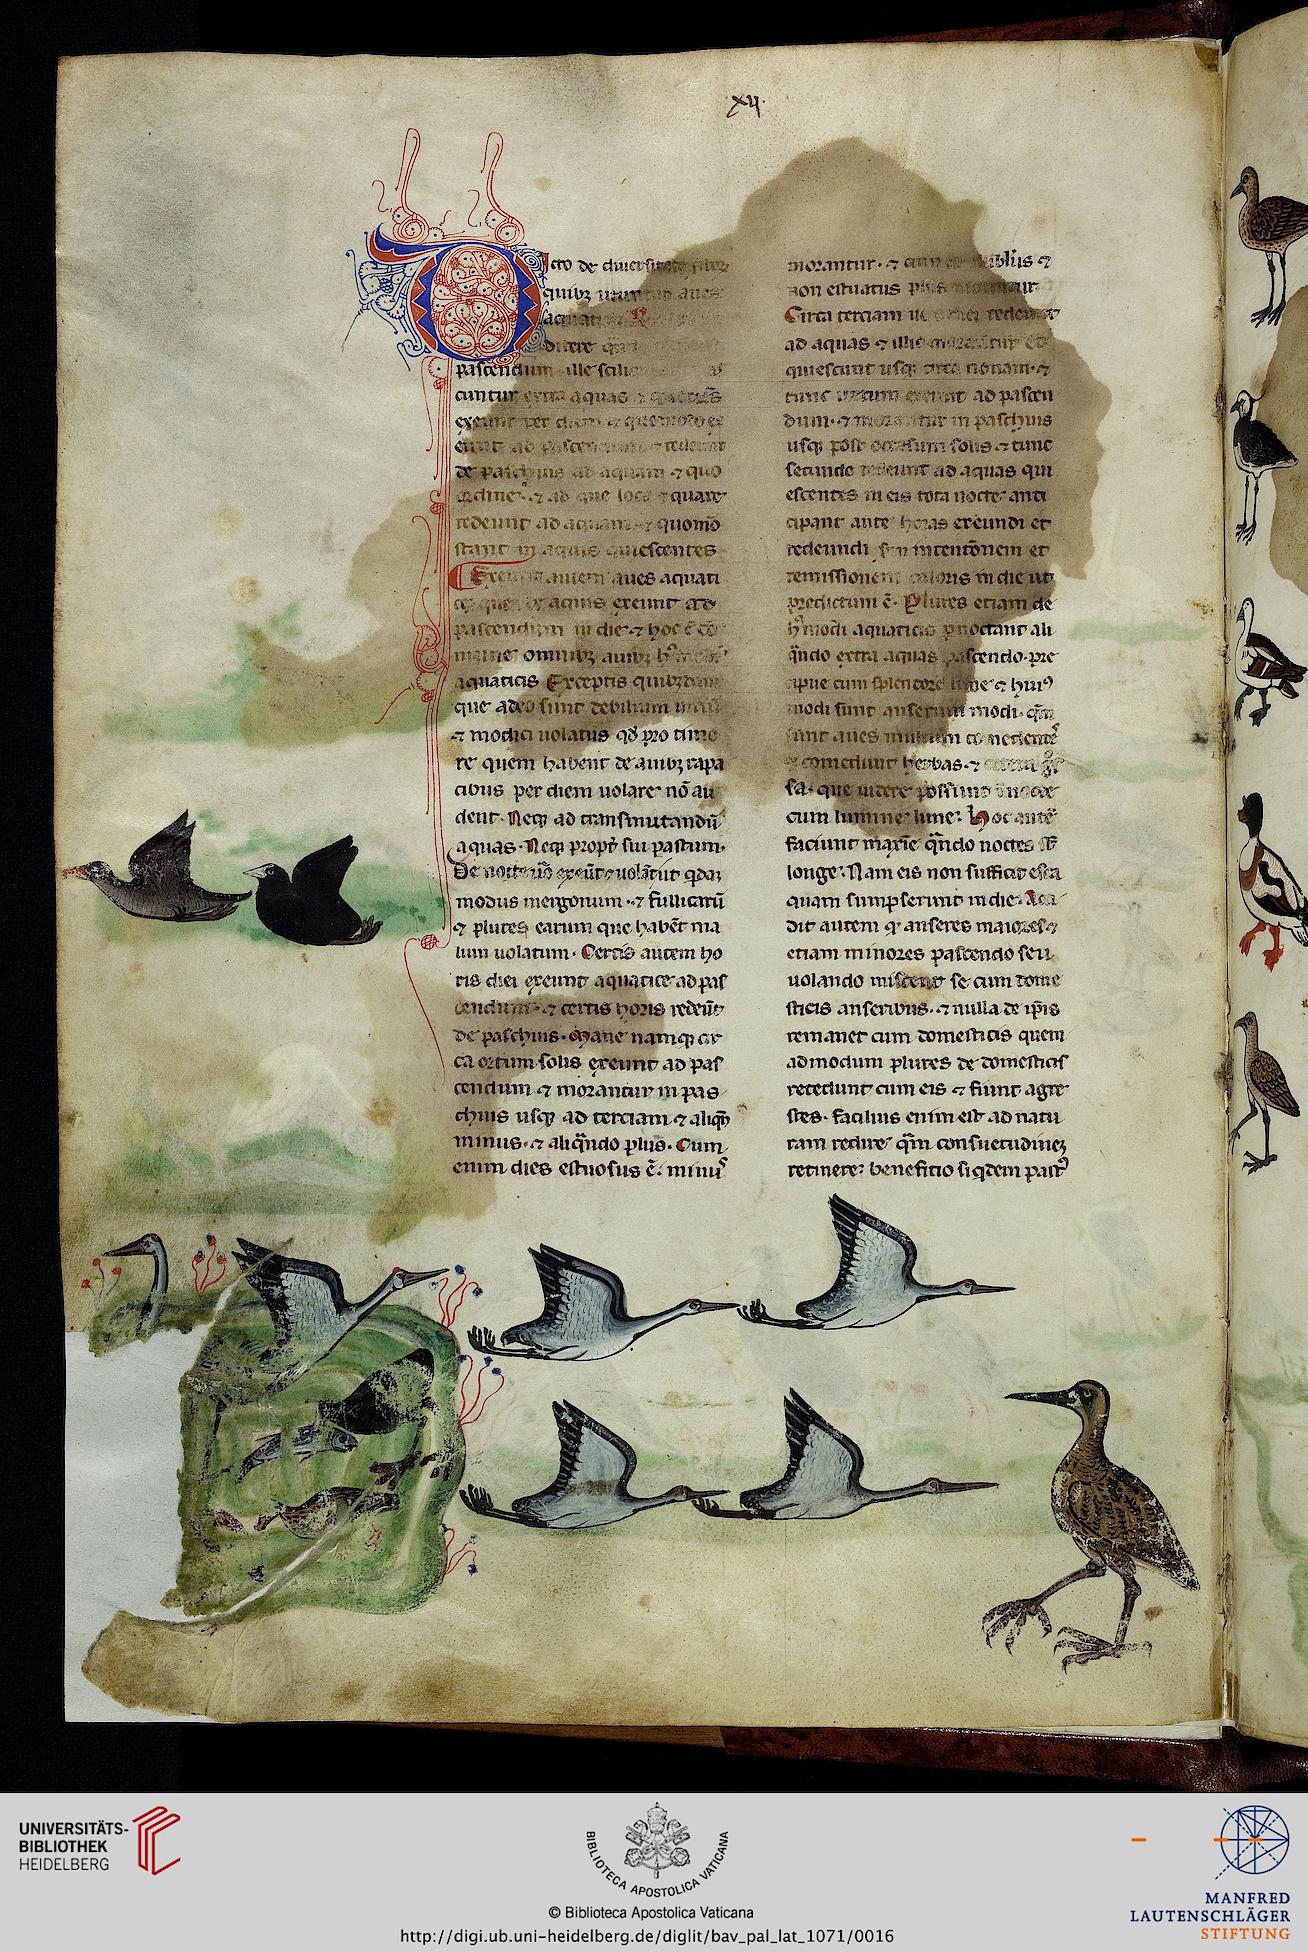 xij
cto de diuersitate
quibꝫ utuntur aues
aquatice
dicere
pascendum ille scilicet
cuntur extra aquas ⁊
exeunt per diem ⁊ quomodo ex
eunt ad pascendum ⁊ redeunt
de paschuis ad aquam ⁊ quo
ordine ⁊ ad que loca ⁊ quare
redeunt ad aquam ⁊ quomō
stant in aquis quiescentes
Exeunt autem aues aquati
ce que de aquis exeunt ad
pascendum in die ⁊ hoc ē cō
mune omnibꝫ auibꝫ
aquaticis Exceptis quibꝫdam
que adeo sunt debilium
⁊ modici uolatus qđ pro timo
re quem habent de auibꝫ rapa
cibus per diem uolare nō au
dent. Neqꝫ ad transmutandū
aquas. Neqꝫ propt̄ sui pastum.
De nocte u̅o exeūt ⁊ uolāt ut qđaꝫ
modus mergonum ⁊ fullicarū
⁊ plures earum que habēt ma
lum uolatum. Certis autem ho
ris diei exeunt aquatice ad pas
cendum ⁊ certis horis redeūt
de paschuis. Mane namqꝫ cir
ca ortum solis exeunt ad pas
cendum ⁊ morantur in pas
chuis usqꝫ ad terciam ⁊ aliqn̄
minus ⁊ aliq̄ndo plus. Cum
enim dies estuosus ē. minꝰ
morantur. ⁊ cum nubilus ⁊
non estuatus plus morantur
Circa terciam u̅o diei redeunt
ad aquas ⁊ illic morātur
quiescunt usqꝫ circa nonam ⁊
tunc iterum exeunt ad pascen
dum. ⁊ morantur in paschuis
usqꝫ post occasum solis ⁊ tunc
secundo redeunt ad aquas qui
escentes in eis tota nocte anti
cipant ante horas exeundi et
redeundi sm̄ intentōnem et
remissionem caloris in die ut
predictum ē. Plures etiam de
hꝰmodi aquaticis pnoctant ali
q̄ndo extra aquas pascendo. pre
cipue cum splendore lune ⁊ huiꝰ
modi sunt anserum modi. qm̄
sunt aues multum comedentes
⁊ comedunt herbas. ⁊ cetera
sa. que uidere possunt nocte
cum lumine lune. Hoc autē
faciunt maxīe q̄ndo noctes sūt
longe. Nam eis non sufficit esca
quam sumpserunt in die. Acci
dit autem qꝫ anseres maiores ⁊
etiam minores pascendo seu
uolando miscent se cum dome
sticis anseribus. ⁊ nulla de ip̄is
remanet cum domesticis quem
admodum plures de domesticis
recedunt cum eis ⁊ fiunt agre
stes. facilius enim est ad natu
ram redire qm̄ consuetudineꝫ
retinere. benefitio siqdem past̉
UNIVERSITÄTS-
BIBLIOTHEK
HEIDELBERG
BIBLIOTECA APOSTOLICA VATICANA
© Biblioteca Apostolica Vaticana
http://digi.ub.uni-heidelberg.de/diglit/bav_pal_lat_1071/0016
MANFRED
LAUTENSCHLÄGER
STIFTUNG